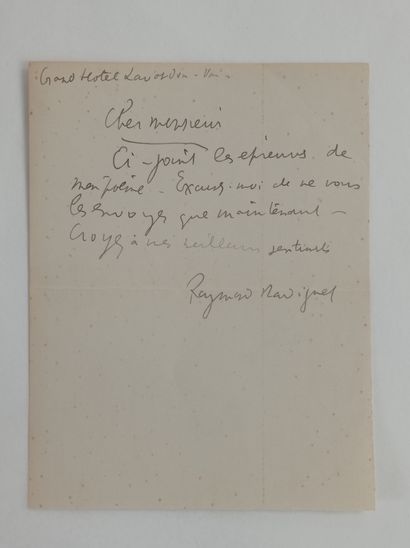 Grand Hotel Lavandou - Var -
Cher monsieur
Ci-joint les épreuves de
mon poème - Excusez-moi de ne vous
les envoyer que maintenant -
Croyez à mes meilleurs sentiments
Raymond Radiguet